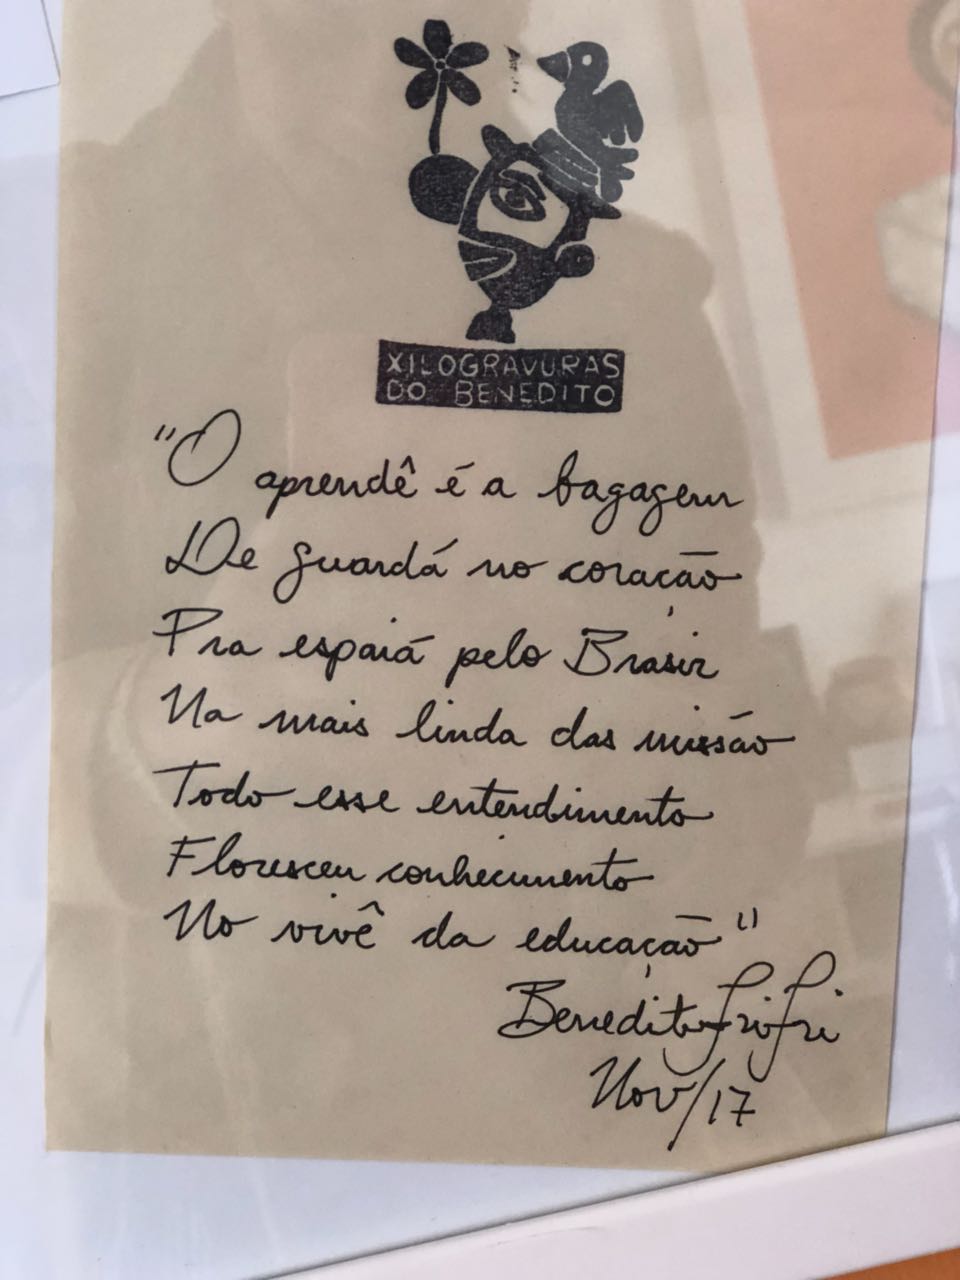 XILOGRAVURAS
DO BENEDITO
"O aprendê é a bagagem
De guardá no coração
Pra espaiá pelo Brasir
Na mais linda das missão
Todo esse entendimento
Floresceu conhecimento
No vivê da educação"
Benedito
Nov/17